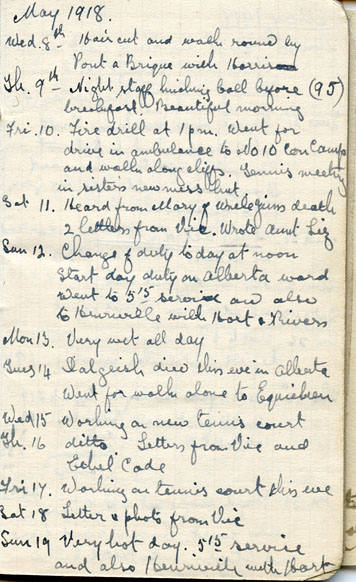 May 1918.
Wed. 8th Haircut and walk round by
Pont a Brique with Harrison
Th. 9th Night staff hushing ball before (95)
breakfast. Beautiful morning
Fri. 10. Fire drill at 1 pm. Went for
drive in ambulance to No 10 Con Camp
and walk along cliffs. Tennis meeting
in sisters new mess hut.
Sat 11. Heard from Mary of death
2 letters from Vic. Wrote Aunt Liz
Sun 12. Change of duty today at noon
Start day duty on Alberta ward
Went to 5.15 service and also
to with Hart & Rivers
Mon 13. Very wet all day
Tues 14 Dalgeish died this eve in Alberta
Went for walk alone to Equiehen
Wed 15 Working on new tennis court
Th. 16 ditto. Letters from Vic and
Ethel Cade
Fri 17. Working on tennis court this eve
Sat 18 Letter & photo from Vic
Sun 19 Very hot day. 5.15 service
and also with Hart